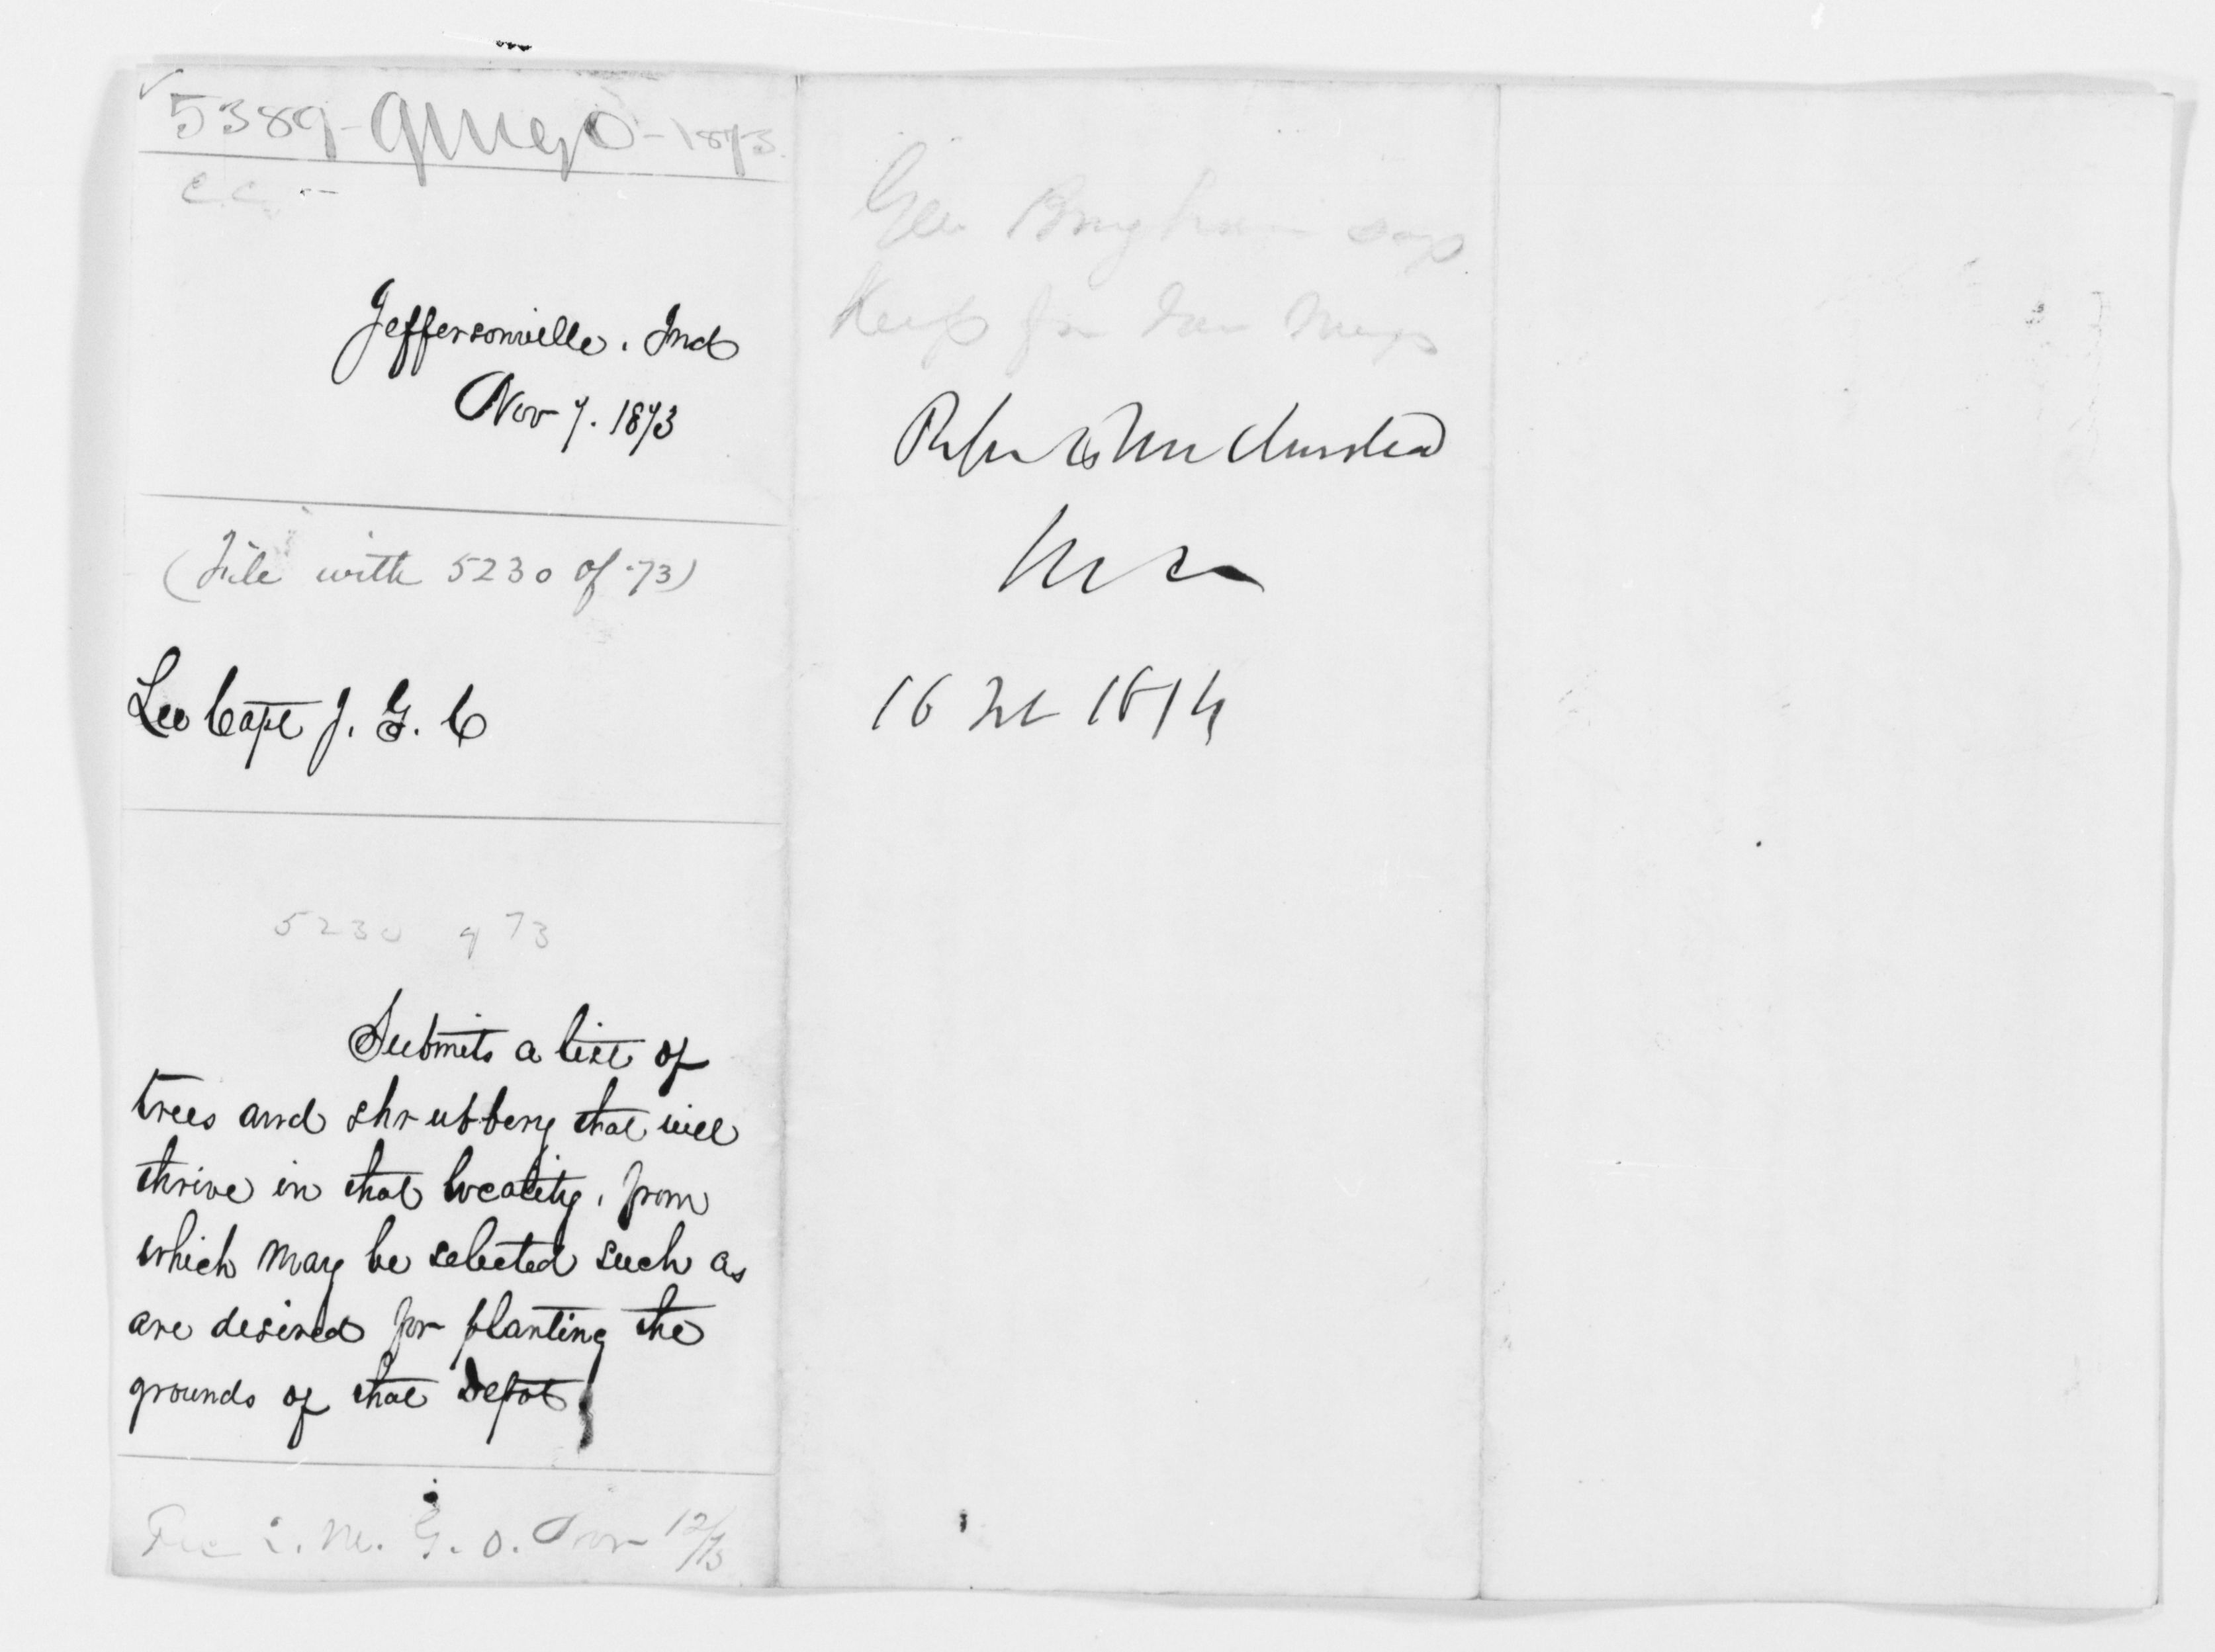 5389-QMGO-1873.
C.C.
Jeffersonville. Ind
Nov 7. 1873
(File with 5230 of '73)
Lee Capt J. G. C
5230 of 73
Submits a list of
trees and shrubbery that will
thrive in that locality, from
which may be selected such as
are desired for planting the
grounds of that Depot
Rec Q. M. G. O. Nov 12/73
Gen Bingham says
Keep for Gen Meigs
Refer to Mr Olmsted
16